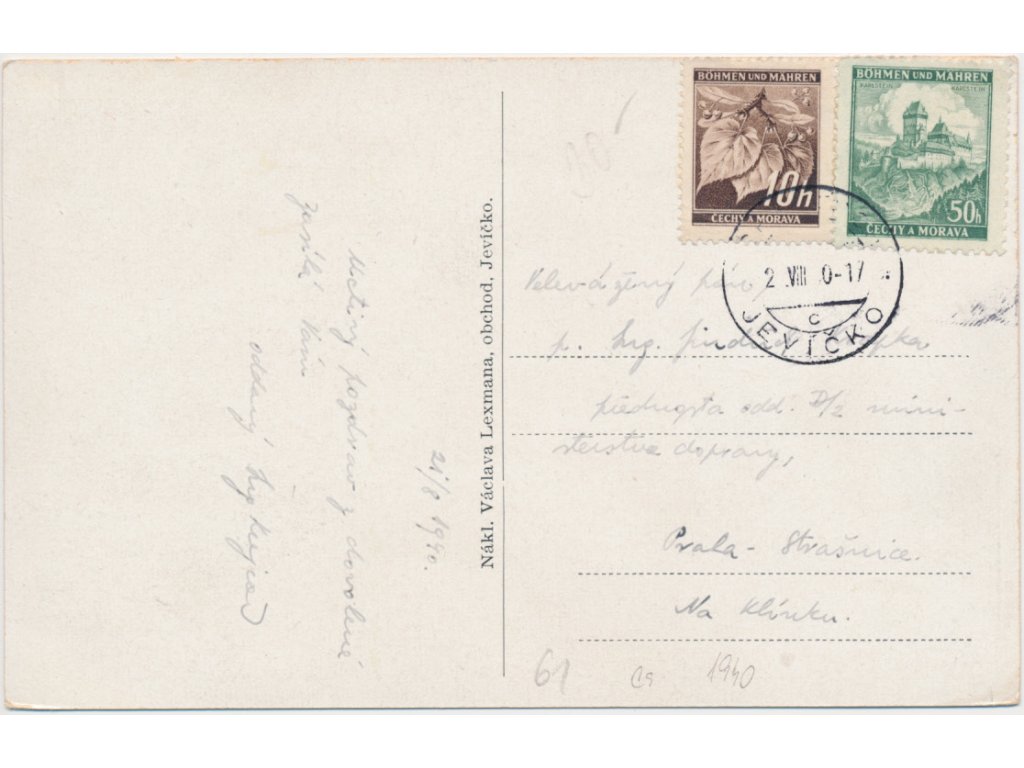 BÖHMEN UND MÄHREN
10h
ČECHY A MORAVA
BÖHMEN UND MÄHREN
KARLSTEIN KARLSTEIN
50h
ČECHY A MORAVA
2 VIII 0-17
c
JEVÍČKO
Uctivý pozdrav z dovolené
zasílá Vám
oddaný Ing
21/8 1940.
Nákl. Václava Lexmana, obchod, Jevíčko.
Velevážený pán
p. Ing.
přednosta odd. D/2 mini-
sterstva dopravy,
Praha - Strašnice.
Na Klínku.
61 ca 1940